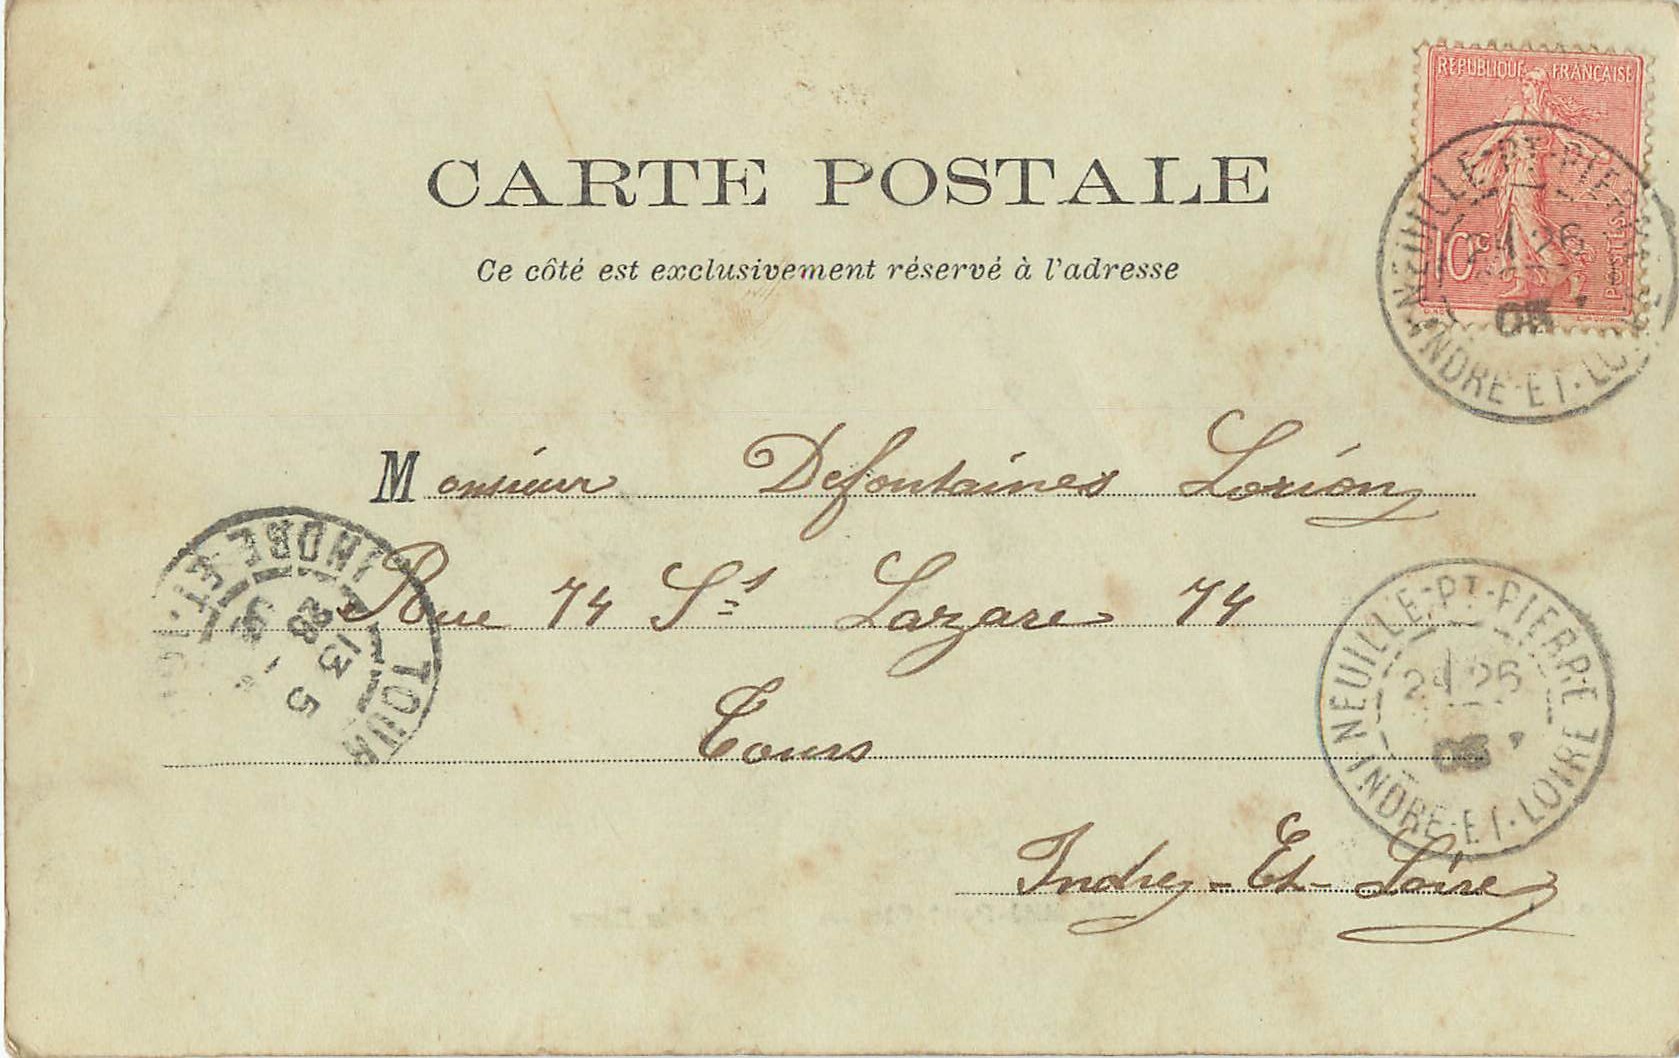 REPUBLIQUE FRANÇAISE
10c POSTES
CARTE POSTALE
Ce côté est exclusivement réservé à l'adresse
NEUILLE-PT-PIERRE
26
INDRE-ET-LOIRE
Monsieur Defontaines Lorion
Rue 74 St Lazare 74
Tours
Indre-Et-Loire
TOUR
INDRE-ET-
13
5
NEUILLE-PT-PIERRE
INDRE-ET-LOIRE